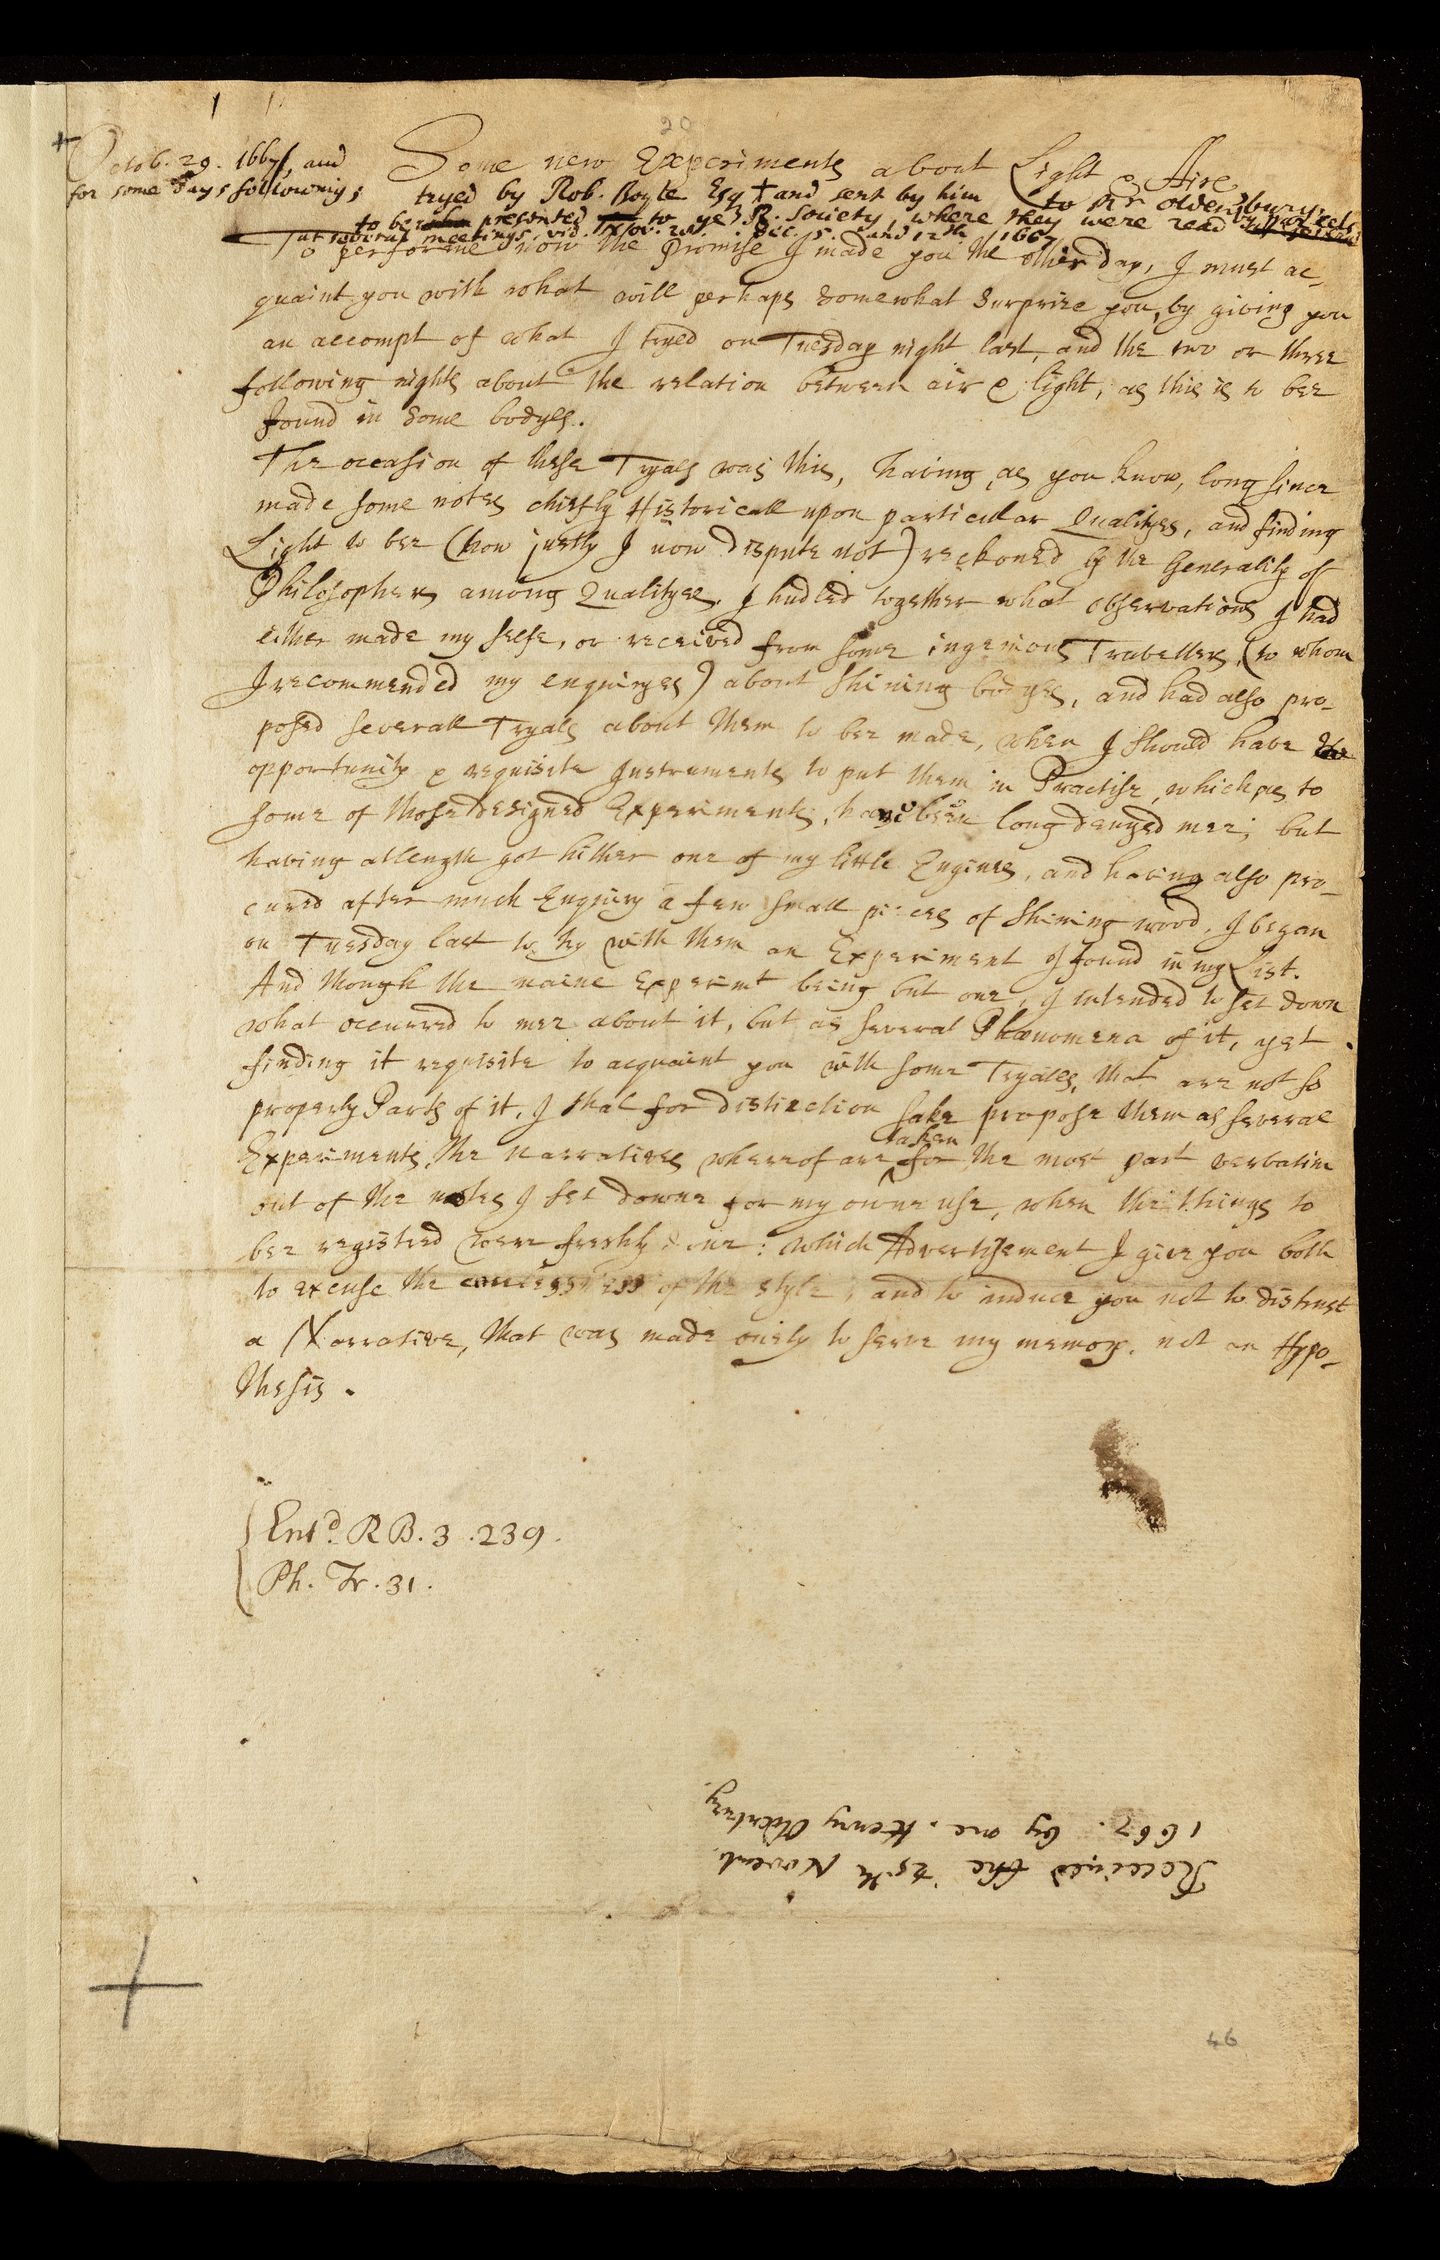 20
+ Octob. 29. 1667, and
for some days following;
Some new Experiments about Light & Aire
tryed by Rob. Boyle Esq + and sent by him to Mr Oldenburg,
to be presented to ye R. Society, where they were read by parcels
at several meetings vid. Nov. Dec. 5. and 12th 1667
To performe now the Promise I made you the other day, I must ac-
quaint you with what will perhaps somewhat Surprize you, by giving you
an accompt of what I tryed on Tuesday night last, and the two or three
following nights about the relation between air & light, as this is to bee
found in some bodyes.
The occasion of these Tryals was this, having, as you know, long since
made some notes chiefly Historicall upon particular Qualityes, and finding
Light to bee (how justly I now dispute not) reckoned by the Generality of
Philosophers among Qualityes, I hudled together what observations I had
either made my selfe, or received from some ingenious Travellers, (to whom
I recommended my enquiryes) about shining bodyes, and had also pro-
posed severall Tryals about them to bee made, when I should have
opportunity & requisite Instruments to put them in Practise, which, as to
some of those designed Experiments, have been long denyed mee; but
having at length got hither one of my little Engines, and having also pro-
cured after much Enquiry a few small pieces of shining wood, I began
on Tuesday last to try with them an Experiment I found in my List.
And though the maine Experimt being but one, I intended to set down
what occurred to mee about it, but as several Phænomena of it, yet
finding it requisite to acquaint you with some Tryals, that are not so
properly Parts of it, I shal for distinction sake propose them as several
Experiments, the Narratives whereof are taken for the most part verbatim
out of the notes I set downe for my owne use, when the things to
bee registred were freshly done: which Advertisement I give you both
to excuse the of the style, and to induce you not to distrust
a Narrative, that was made onely to serve my memory, not an Hypo-
thesis.
Entd. R B. 3. 239.
Ph. Tr. 31.
Received the 25th Novemb.
1667. by me. Henry Oldenburg.
46